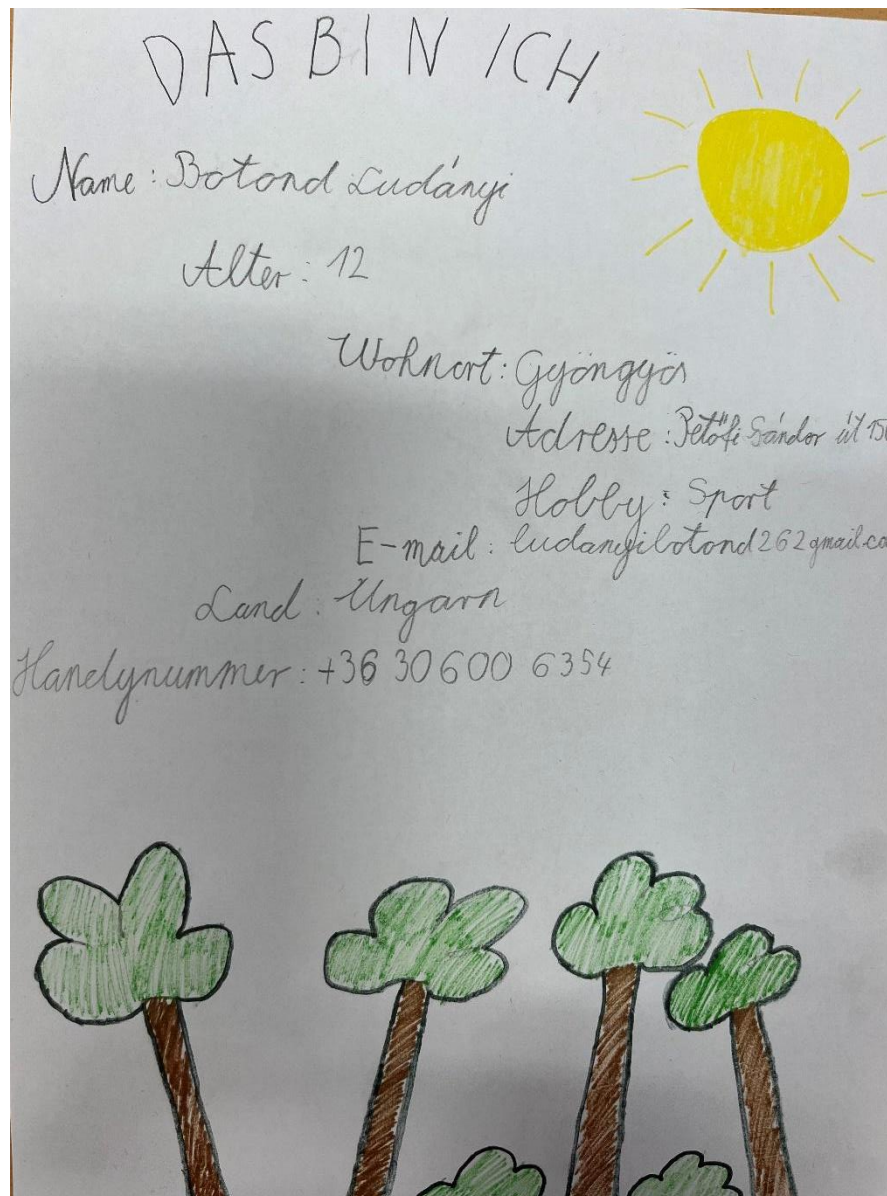 DAS BIN ICH
Name: Botond Ludányi
Alter: 12
Wohnort: Gyöngyös
Adresse: Petőfi Sándor út
Hobby: Sport
E-mail: ludanyibotond262gmail.co
Land: Ungarn
Handynummer: +36 30 600 6354